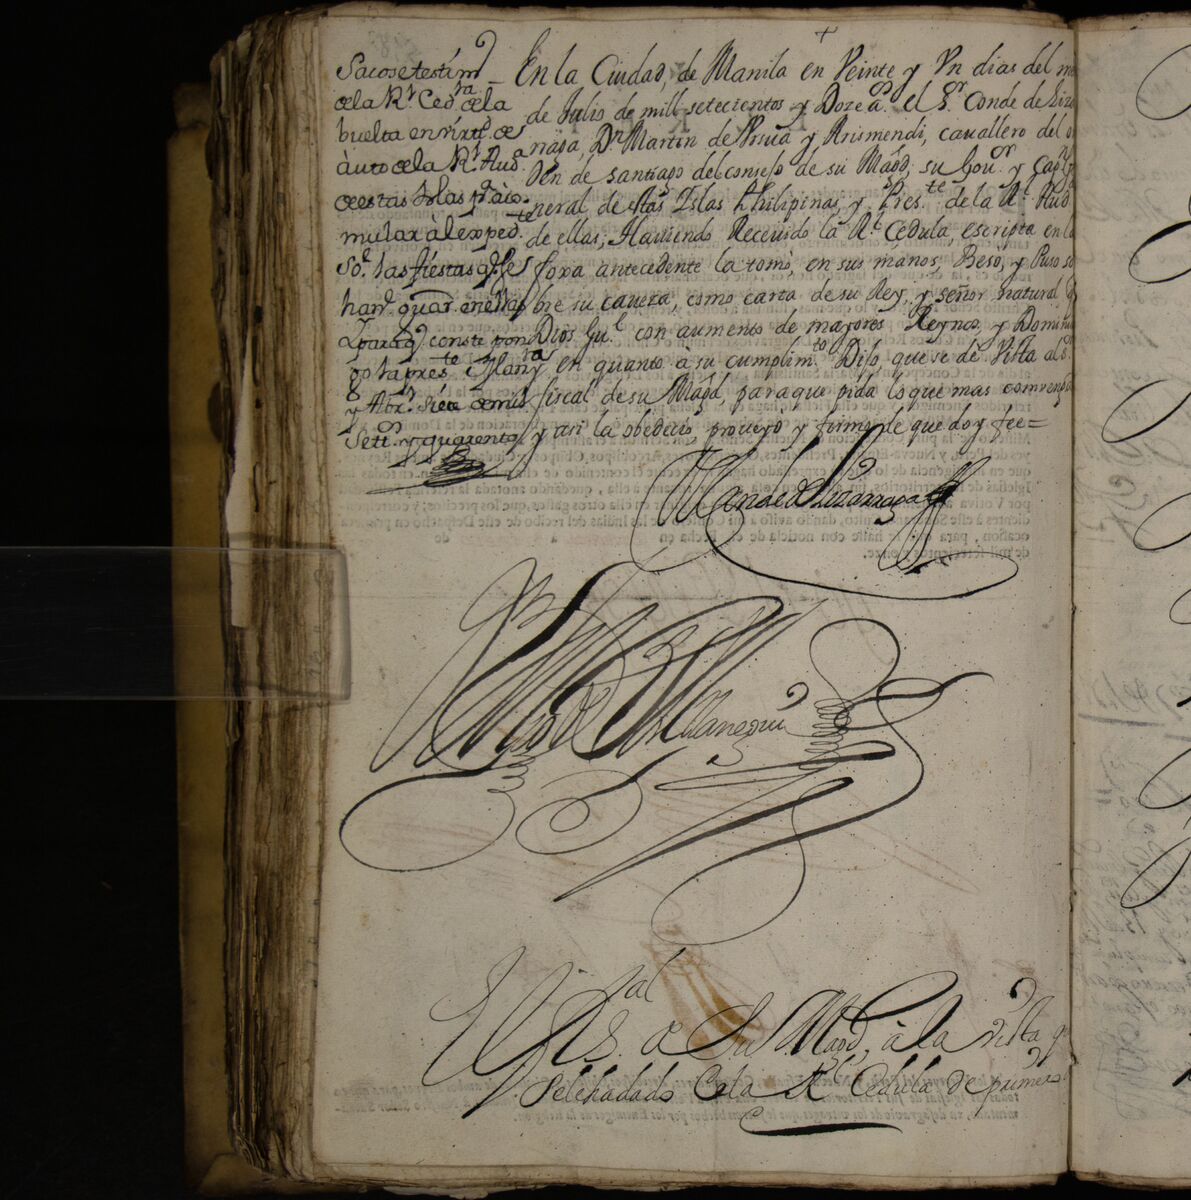 Sacose testim.º
de la Rl Ced.ª de la
buelta en virtd de
auto de la Rl Aud.ª
de estas Islas pª acu
mular al exped.te
So.e las fiestas q.e se
han de
y para q.e conste pon
go la press.te Man.ª
y Abr. siete de mil
Sett.os y quarenta
En la Ciudad, de Manila en Veinte y Vn dias del m
de Julio de mill setecientos y Doze a.s el S.or Conde de Liza
rraga, Dn Martin de Vrsua y Arismendi, cauallero del o
Den de santiago del consejo de su Magd, su Gou.or y Cap.n G
eneral de estas Islas Philipinas y Pres.te de la Rl Aud.ª
de ellas, Hauiendo Receuido la Rl Cedula, escripta en la
foxa antecedente la tomò, en sus manos, Besò, y Puso so
bre su caueza, como carta de su Rey, y señor natural q
Dios gu.e con aumento de mayores Reynos, y Domini
y en quanto a su cumplim.to Dijo que se dè Vista al s.r
fiscal de su Magd, para que pida lo que mas convenga
y asi la obedecio, proueyò y firmò de que doy fee=
El Conde de Lizarraga
El fis.al de Su Magd, à la vista q
se le ha dado de la Rl Cedula de primero